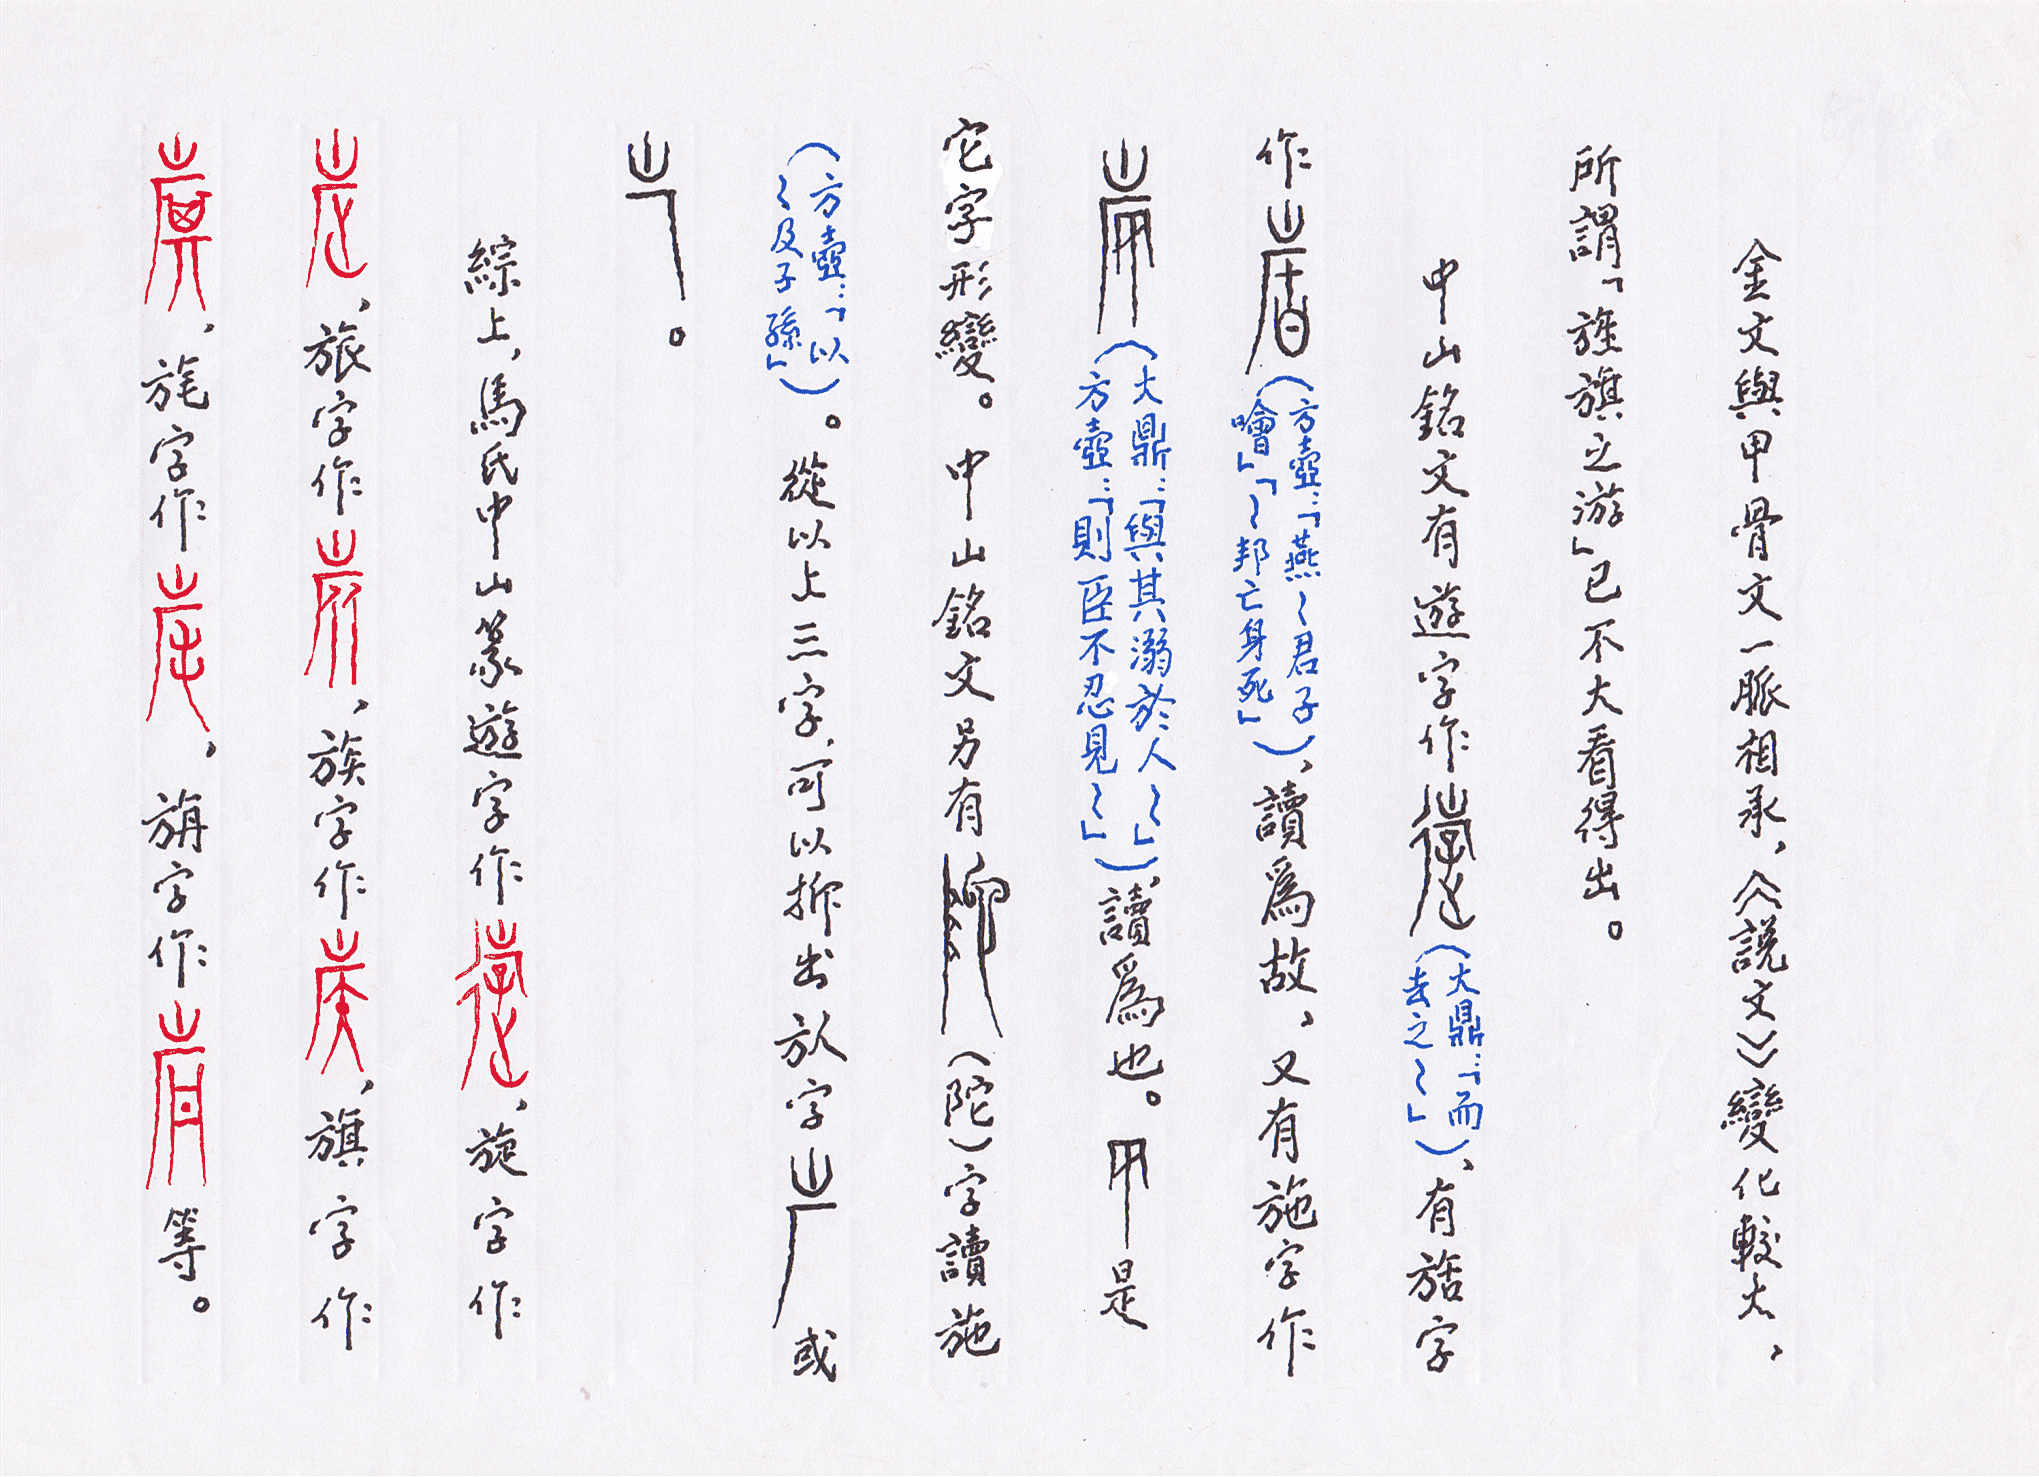 金文與甲骨文一脈相承，《說文》變化較大，
所謂「旌旗之游」已不大看得出。
中山銘文有遊字作（大鼎：「而去之～」）、有𣃘字
作（方壺：「燕～君子噲」「～邦亡身死」），讀爲故，又有施字作
（大鼎：「與其溺於人～」方壺：「則臣不忍見～」），讀爲也。是
它字形變。中山銘文另有（陀）字讀施
（方壺：「以～及子孫」）。從以上三字，可以抑出㫃字或
。
綜上，馬氏中山篆遊字作，施字作
，旅字作，族字作，旗字作
，旄字作，旃字作等。